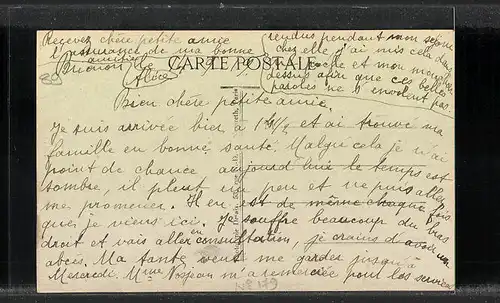 Recevez chère petite amie
l'assurance de ma bonne
amitié
Alice
rendus pendant mon séjour
chez elle j'ai mis cela dans
poche et mon mouchoir
dessus afin que ces belles
paroles ne s'envolent pas.
CARTE POSTALE
Bien chère petite amie.
Je suis arrivée bien à 1 h ½ et ai trouvé ma
famille en bonne santé. Malgré cela je n'ai
point de chance aujourd'hui le temps est
sombre, il pleut un peu et ne puis aller
me promener. Il en est de même chaque fois
que je viens ici. Je souffre beaucoup du bras
droit et vais aller en consultation, je crains d'avoir un
abcès. Ma tante veut me garder jusqu'à
Mercredi. Mme m'a remerciée pour les services
No 179